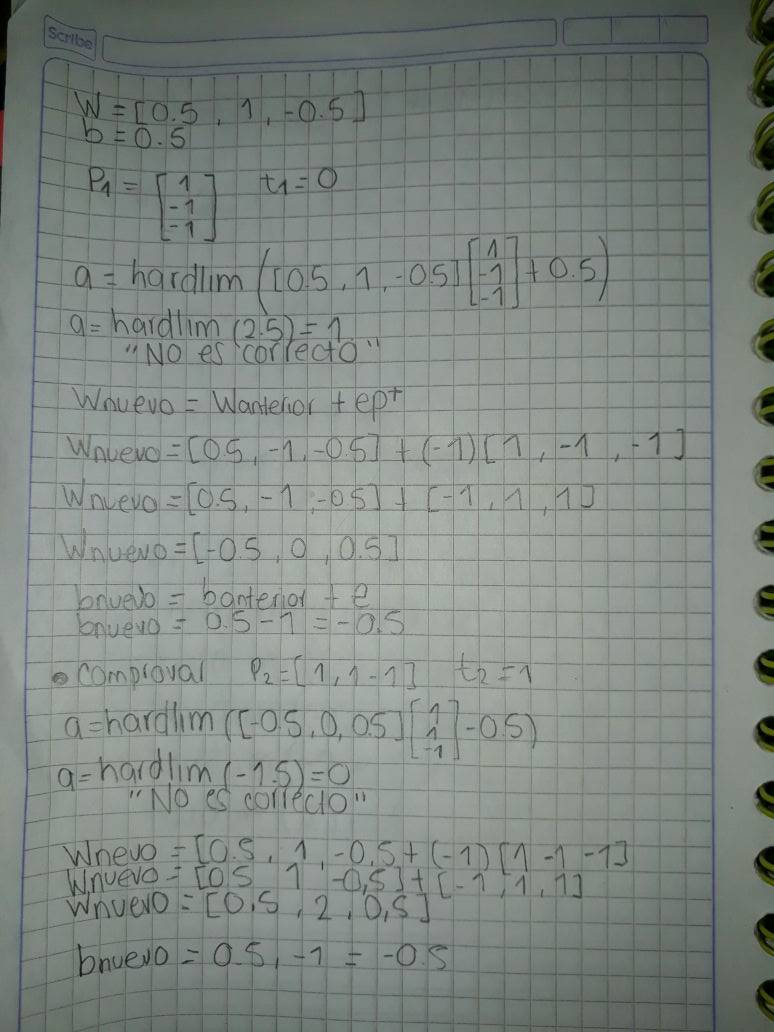 Scribe
W = [0.5 , 1 , -0.5]
b = 0.5
P1 = [1 -1 -1] t1 = 0
a = hardlim ([0.5 , 1 , -0.5] [1 -1 -1] + 0.5)
a = hardlim (2.5) = 1
"NO es correcto"
Wnuevo = Wanterior + ep+
Wnuevo = [0.5 , -1 , -0.5] + (-1) [1 , -1 , -1]
Wnuevo = [0.5 , -1 , -0.5] + [-1 , 1 , 1]
Wnuevo = [-0.5 , 0 , 0.5]
bnuevo = banterior + e
bnuevo = 0.5 - 1 = -0.5
• comproval P2 = [1 , 1 -1] t2 = 1
a = hardlim ([-0.5 , 0 , 0.5] [1 1 -1] - 0.5)
a = hardlim (-1.5) = 0
"NO es correcto"
Wnevo = [0.5 , 1 , -0.5 + (-1) [1 -1 -1]
Wnuevo = [0.5 1 -0,5] + [-1 , 1 , 1]
Wnuevo = [0,5 , 2 , 0,5]
bnuevo = 0.5 , -1 = -0.5